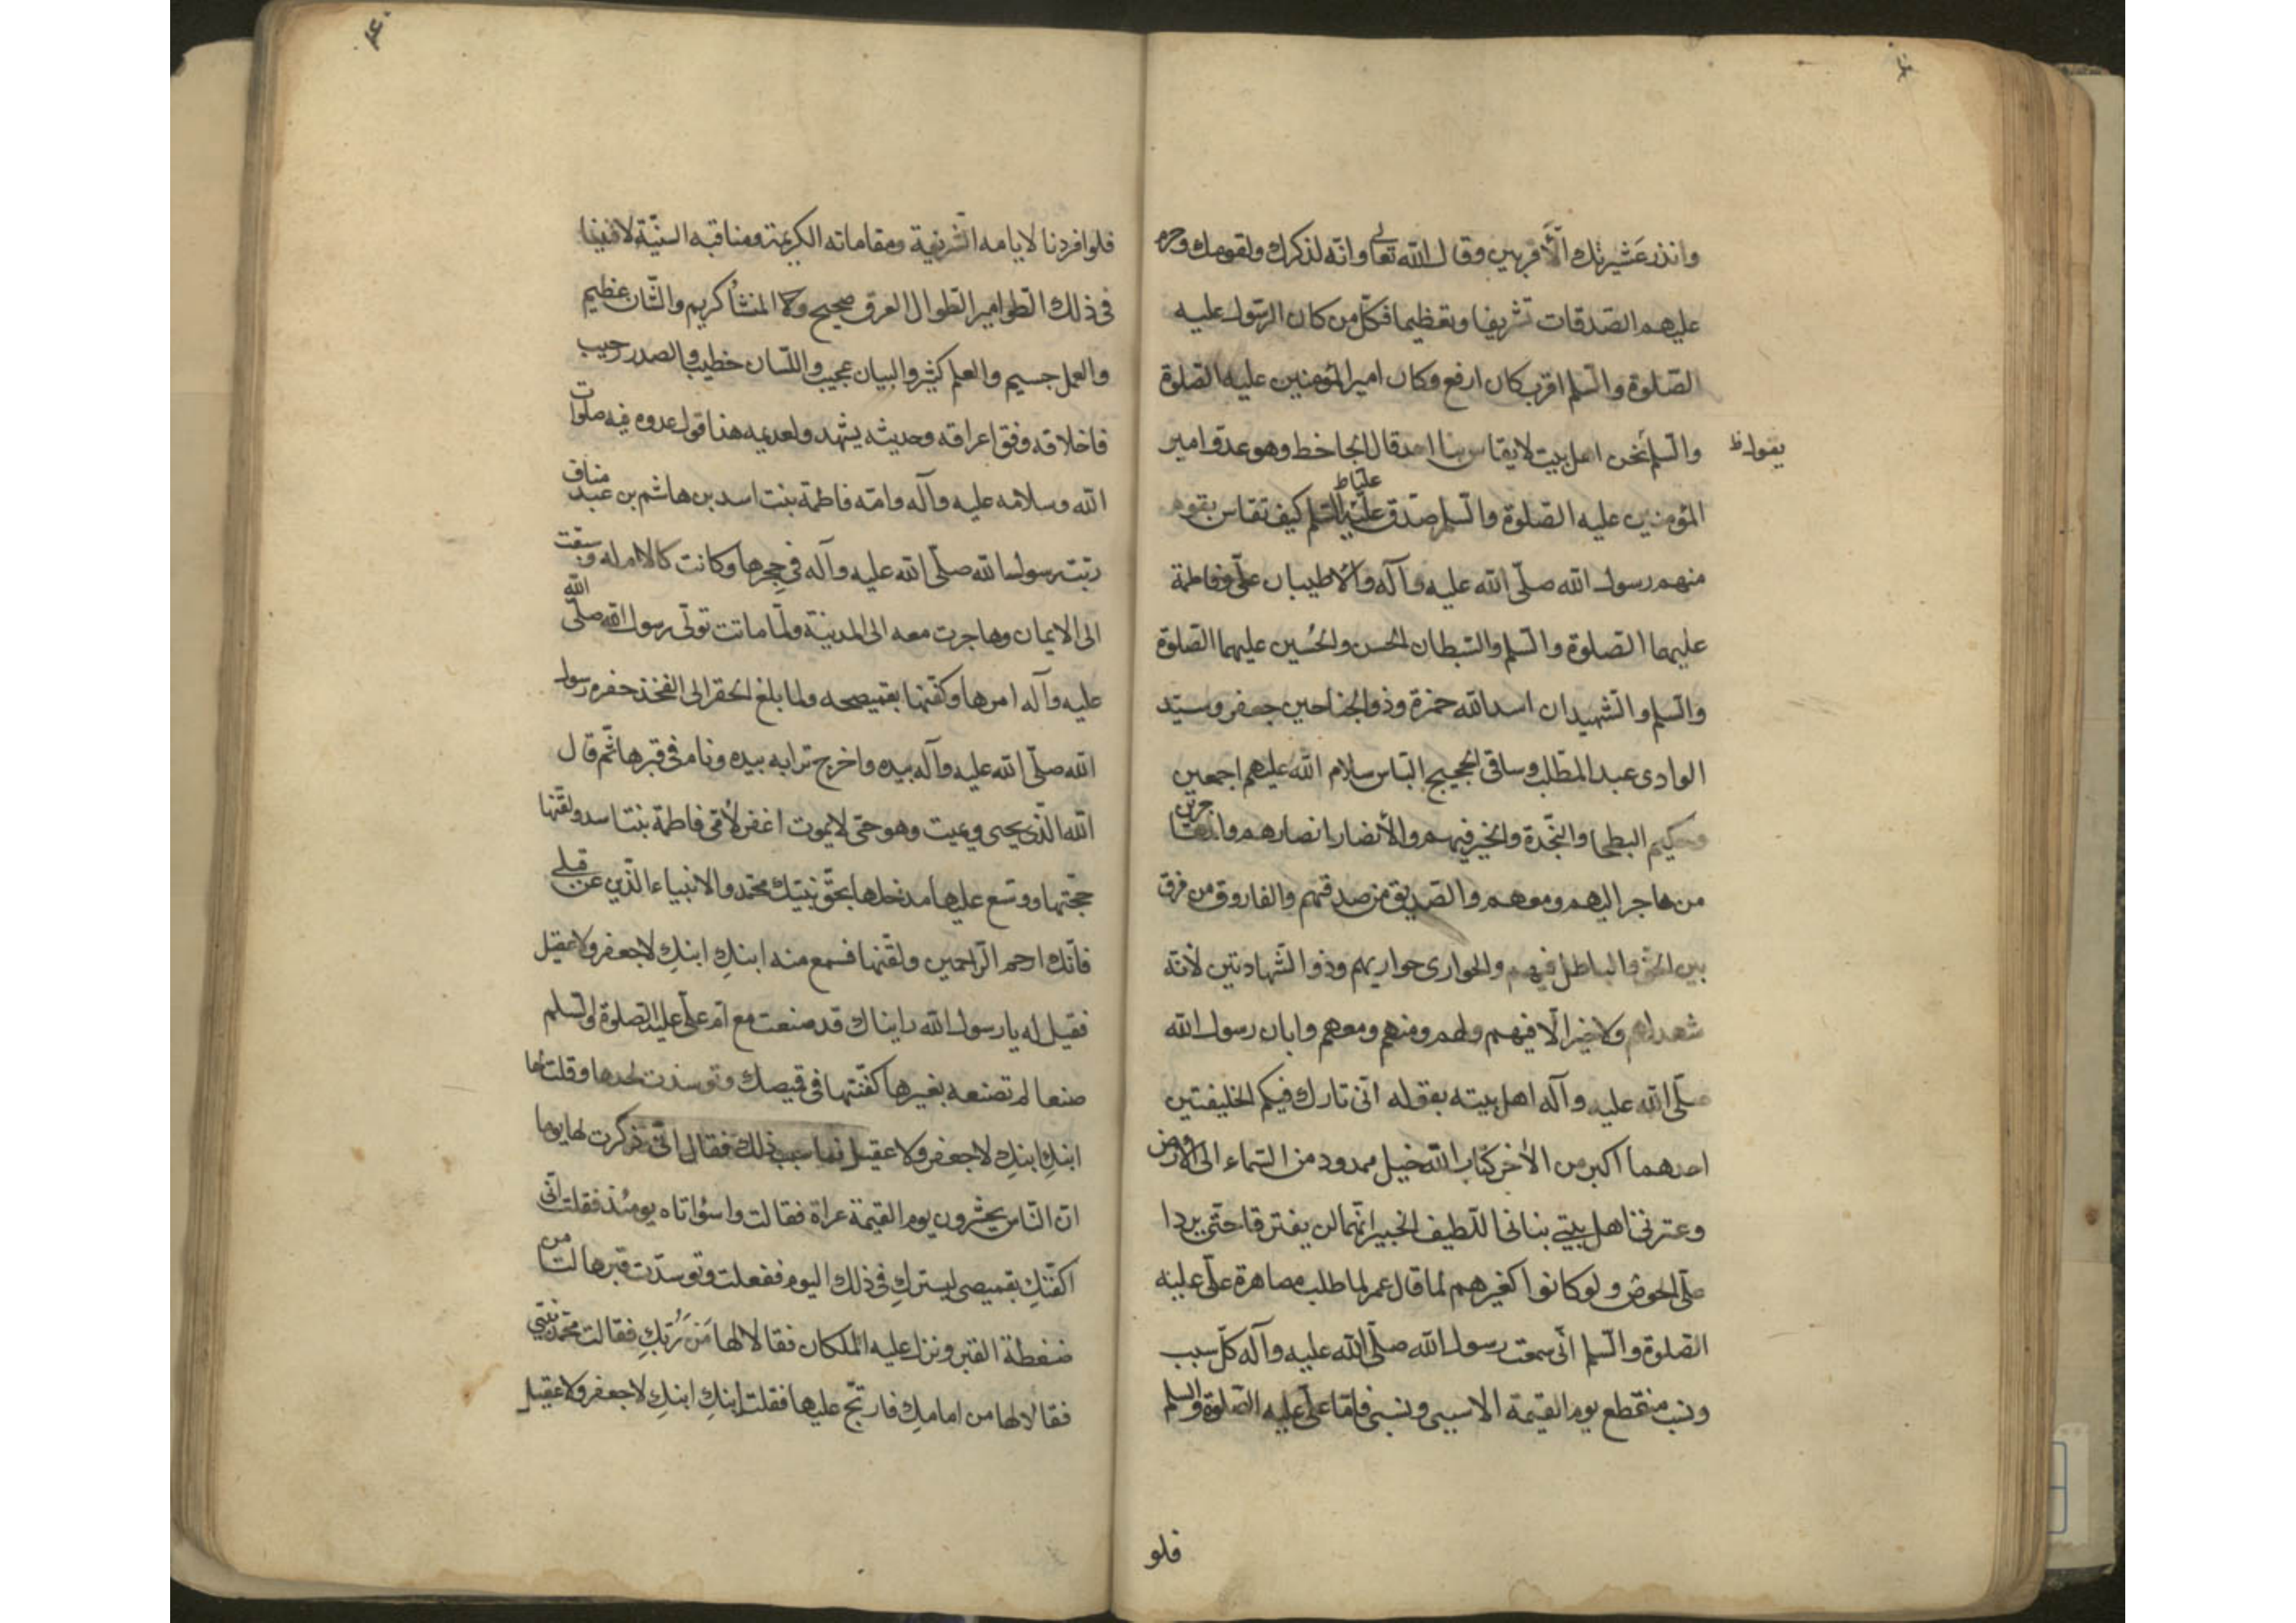 وانذر عَشيرتك الأَقربين وقال الله تعالى وانّه لذكرك ولقومك وحرم
عليهم الصّدقات تشريفا وتعظيما فكلّ من كان الرّسول عليه
الصّلوة والسّلم اقرب كان ارفع وكان امير المؤمنين عليه الصّلوة
والسّلم نحن اهل بيت لا يقاس بنا احد قال الجاحظ وهو عدوّ امير
يقول ظ
المؤمنين عليه الصّلوة والسّلم صدق عليه السّلم كيف تقاس بقوم
علىّ ظ
منهم رسول الله صلّى الله عليه وآله والأطيبان علىّ وفاطمة
عليهما الصّلوة والسّلم والسّبطان الحسن والحُسين عليهما الصّلوة
والسّلم والشّهيدان اسد الله حمزة وذو الجناحين جعفر وسيّد
الوادى عبد المطّلب وساقى الحجيج العبّاس سلام الله عليهم اجمعين
وحكيم البطحا والنّجدة والخير فيهم والأنصار انصارهم والمهاجرين
من هاجر اليهم ومعهم والصّديق من صدقهم والفاروق من فرق
بين الحقّ والباطل فيهم والحوارى حواريهم وذو الشّهادتين لأنّه
شهد لهم ولا خير الّا فيهم ولهم ومنهم ومعهم وابان رسول الله
صلّى الله عليه وآله اهل بيته بقوله انّى تارك فيكم الخليفتين
احدهما اكبر من الأخر كتاب الله حبل ممدود من السّماء الى الارض
وعترتى اهل بيتى نبّانى اللّطيف الخبير انّهما لن يفترقا حتّى يردا
علىّ الحوض ولو كانوا كغيرهم لما قال عمر لما طلب مصاهرة علىّ عليه
الصّلوة والسّلم انّى سمعت رسول الله صلّى الله عليه وآله كلّ سبب
ونسب منقطع يوم القيمة الا سببى ونسبى فامّا علىّ عليه الصّلوة والسلم
فلو
فلو افردنا لايامه الشّريفة ومقاماته الكريمة ومناقبه السنيّة لافنينا
فى ذلك الطّوامير الطّوال العرق صحيح والمنشأ كريم والشّان عظيم
والعمل جسيم والعلم كثير والبيان عجيب واللّسان خطيب والصدر رحيب
فاخلاقه وفق اعراقه وحديثه يشهد لقديمه هذا قول عدوه فيه صلوات
الله وسلامه عليه وآله وامّه فاطمة بنت اسد بن هاشم بن عبد مناف
ربّت رسول الله صلّى الله عليه وآله فى حِجرها وكانت كالام له وسبقت
الى الايمان وهاجرت معه الى المدينة ولمّا ماتت تولّى رسول الله صلّى الله
عليه وآله امرها وكفّنها بقميصه ولما بلغ الحفر الى الفخذ حفره رسول
الله صلّى الله عليه وآله بيده واخرج ترابه بيده ونام فى قبرها ثمّ قال
الله الّذى يحيى ويميت وهو حىّ لا يموت اغفر لأمّى فاطمة بنت اسد ولقّنها
حجّتها ووسّع عليها مدخلها بحقّ نبيّك محمّد والانبياء الّذين من قبلى
فانّك ارحم الرّاحمين ولقّنها فسمع منه ابنكِ ابنكِ لا جعفر ولا عقيل
فقيل له يا رسول الله رايناك قد صنعت مع امّ علىّ عليه الصّلوة والسّلم
صنعا لم تصنعه بغيرها كفّنتها فى قميصك وتوسّدت لحدها وقلت لها
ابنكِ ابنكِ لا جعفر ولا عقيل فما سبب ذلك فقال انّى ذكرت لها يوما
انّ النّاس يحشرون يوم القيمة عراة فقالت واسؤاتاه يومئذ فقلت انّى
اكفّنكِ بقميصى ليستركِ فى ذلك اليوم ففعلت وتوسّدت قبرها لتامن
ضغطة القبر ونزل عليه الملكان فقالا لها مَن رَبّكِ فقالت محمّد نبيّى
فقالا لها من امامكِ فارتجّ عليها فقلت ابنكِ ابنكِ لا جعفر ولا عقيل